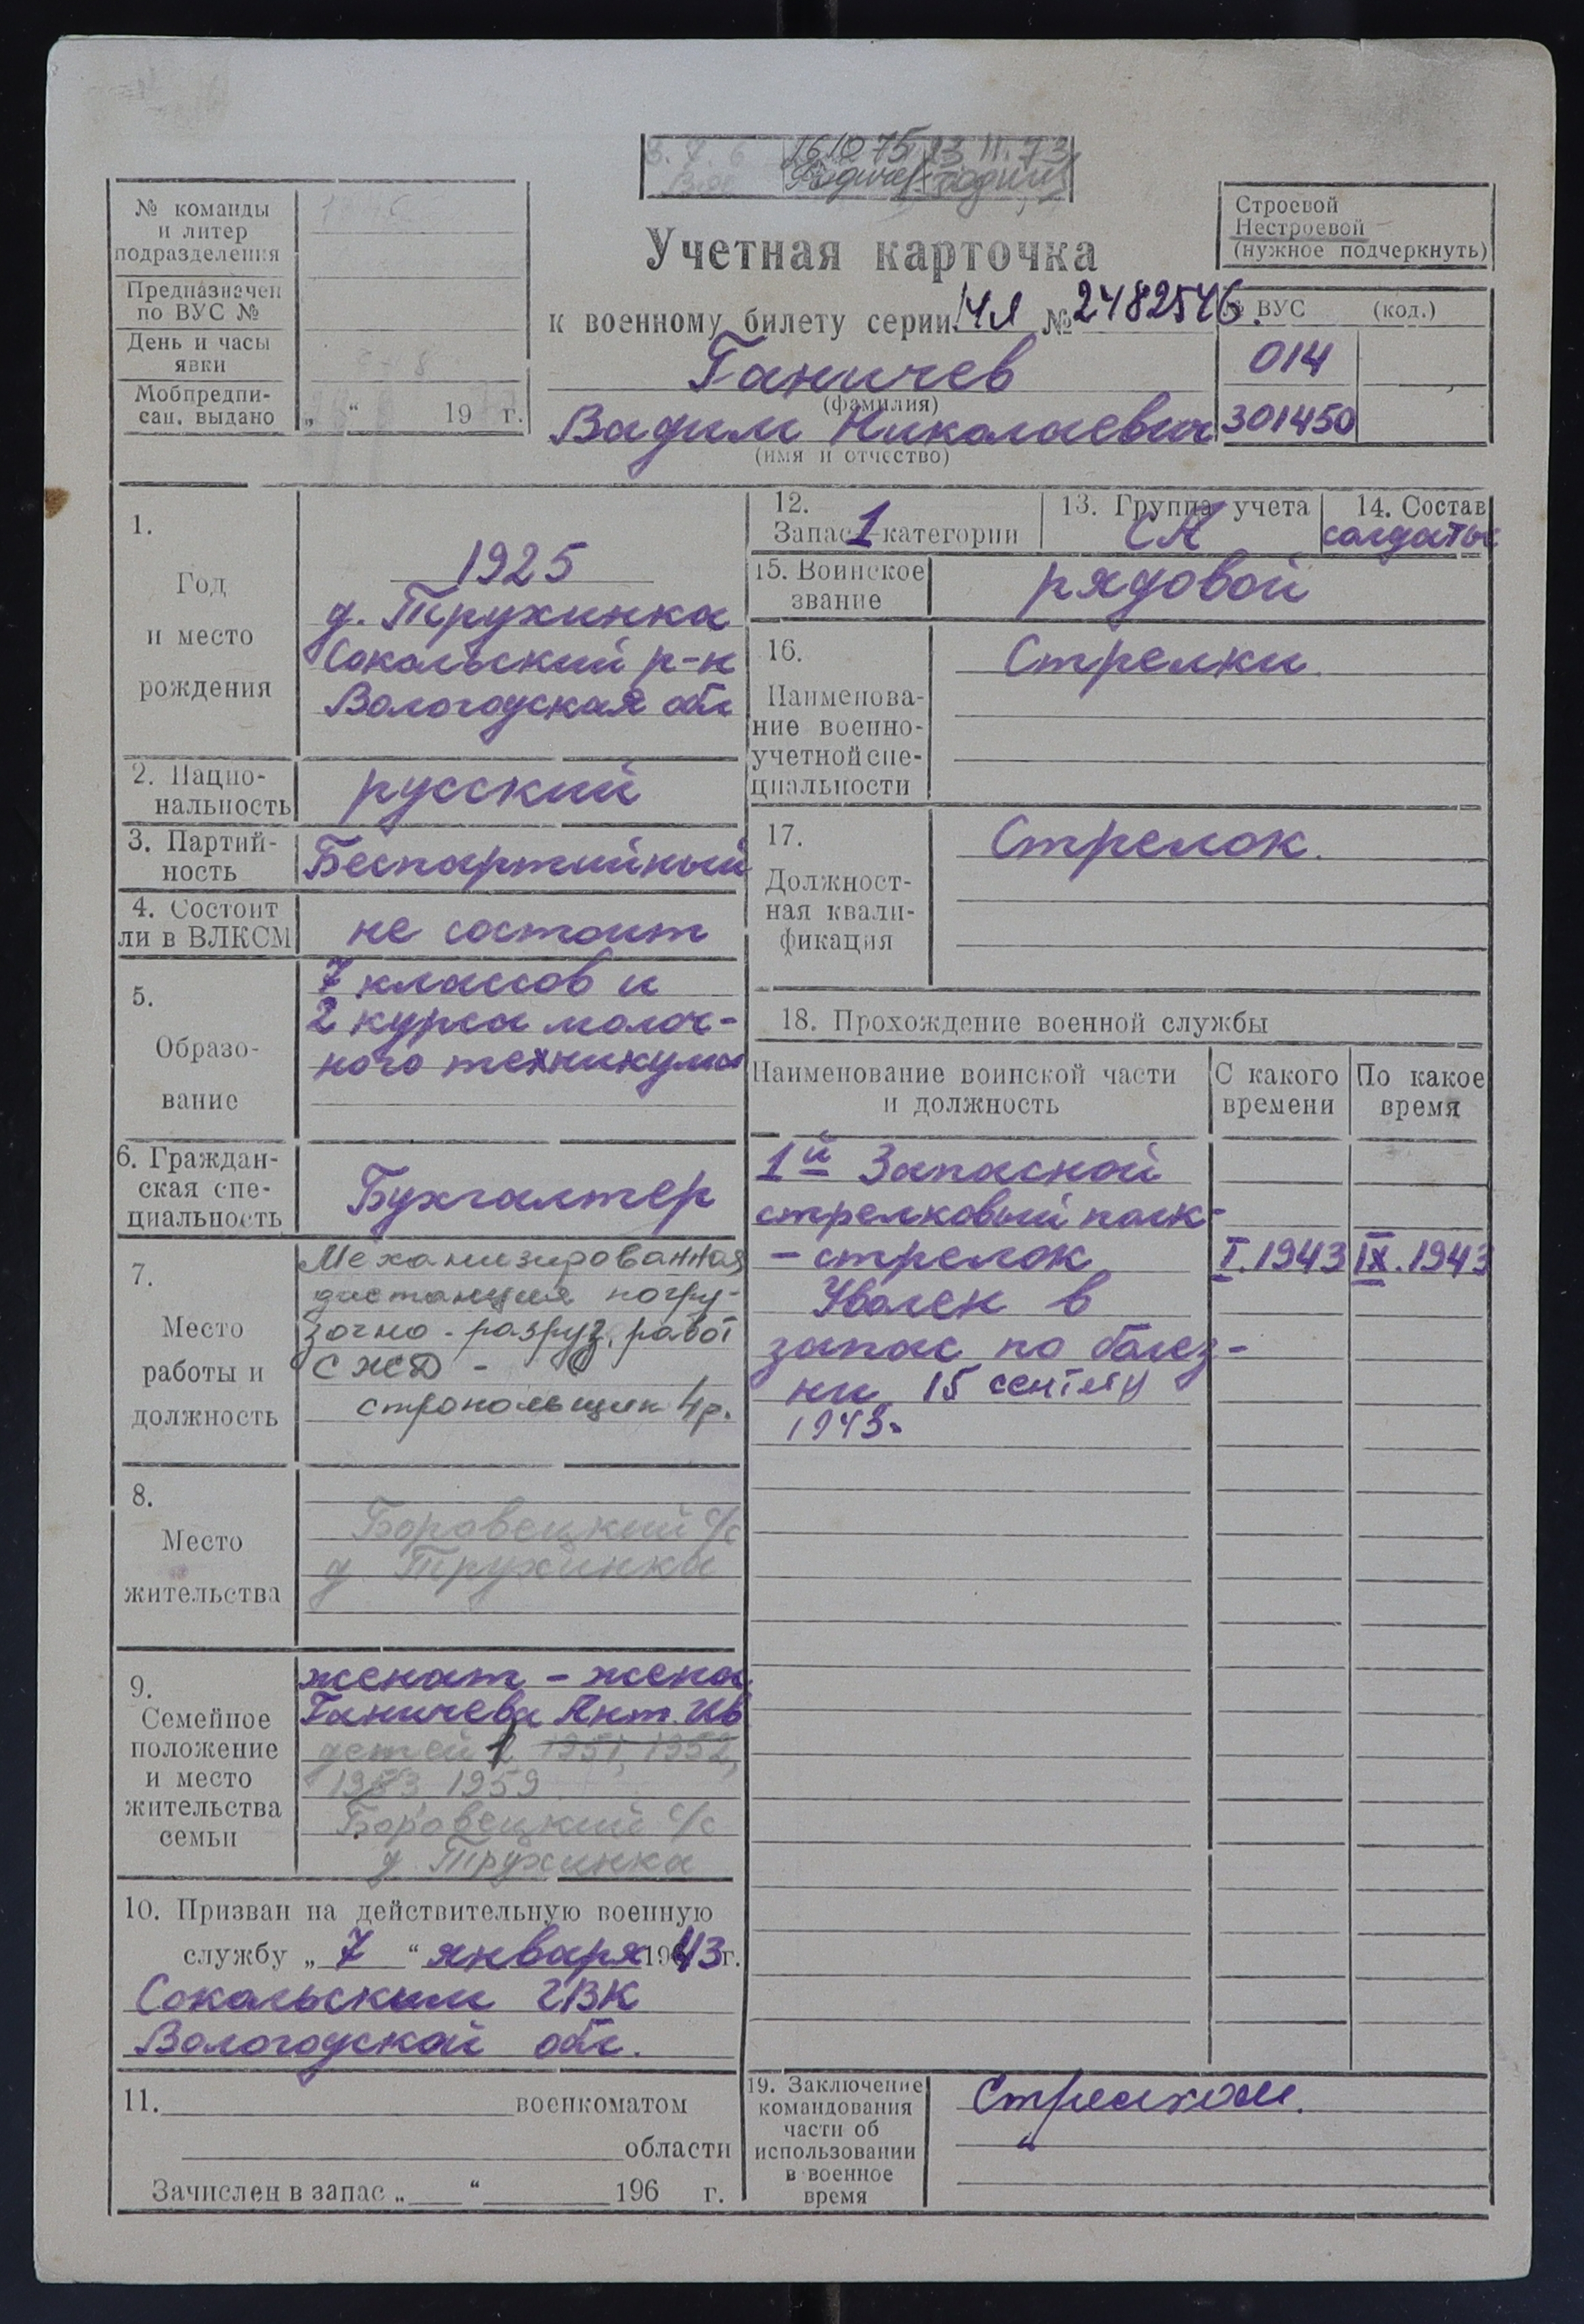 16 10 75 23 11.73
№ команды
и литер
подразделения
Предназначен
по ВУС №
День и часы
явки
Мобпредпи-
сан. выдано
„ “ 19 г.
Строевой
Нестроевой
(нужное подчеркнуть)
Учетная карточка
к военному билету серии №2482546.
Ганичев
(фамилия)
Вадим Николаевич
(имя и отчество)
№ ВУС (код.)
014
301450
1.
Год
и место
рождения
1925
д. Трухинка
Сокольский р-н
Вологодская обл
2. Нацио-
нальность
русский
3. Партий-
ность
Беспартийный
4. Состоит
ли в ВЛКСМ
не состоит
5.
Образо-
вание
7 классов и
2 курса молоч-
ного техникума
6. Граждан-
ская спе-
циальность
Бухгалтер
7.
Место
работы и
должность
Механизированная
дистанция погру-
зочно-разруз. работ
СЖД -
стропольщик 4р.
8.
Место
жительства
Боровецкий с/с
д Трухинка
9.
Семейное
положение
и место
жительства
семьи
женат - жена
Ганичева Ант. Ив
детей 1 1951, 1952,
1953, 1959
Боровецкий с/с
д. Трухинка
10. Призван на действительную военную
службу „7“ января 1943г.
Сокольским ГВК
Вологодской обл.
11. военкоматом
области
Зачислен в запас „ “ 196 г.
12.
Запас 1 категории
13. Группа учета
СА
14. Состав
солдаты
15. Воинское
звание
рядовой
16.
Наименова-
ние военно-
учетной спе-
циальности
Стрелки
17.
Должност-
ная квали-
фикация
Стрелок.
18. Прохождение военной службы
Наименование воинской части
и должность
С какого
времени
По какое
время
1й Запасной
стрелковый полк-
- стрелок I.1943 IX.1943
Уволен в
запас по болез-
ни 15 сентября
1943.
19. Заключение
командования
части об
использовании
в военное
время
Стрелком.